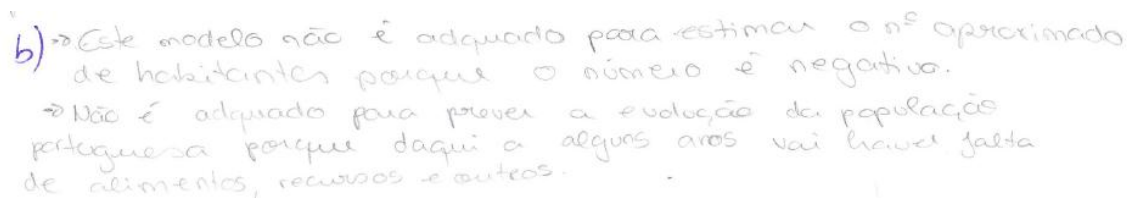 b) → Este modelo não é adquado para estimar o nº aproximado
de habitantes porque o número é negativo.
→ Não é adquado para prever a evolução da população
portuguesa porque daqui a alguns anos vai haver falta
de alimentos, recursos e outros.